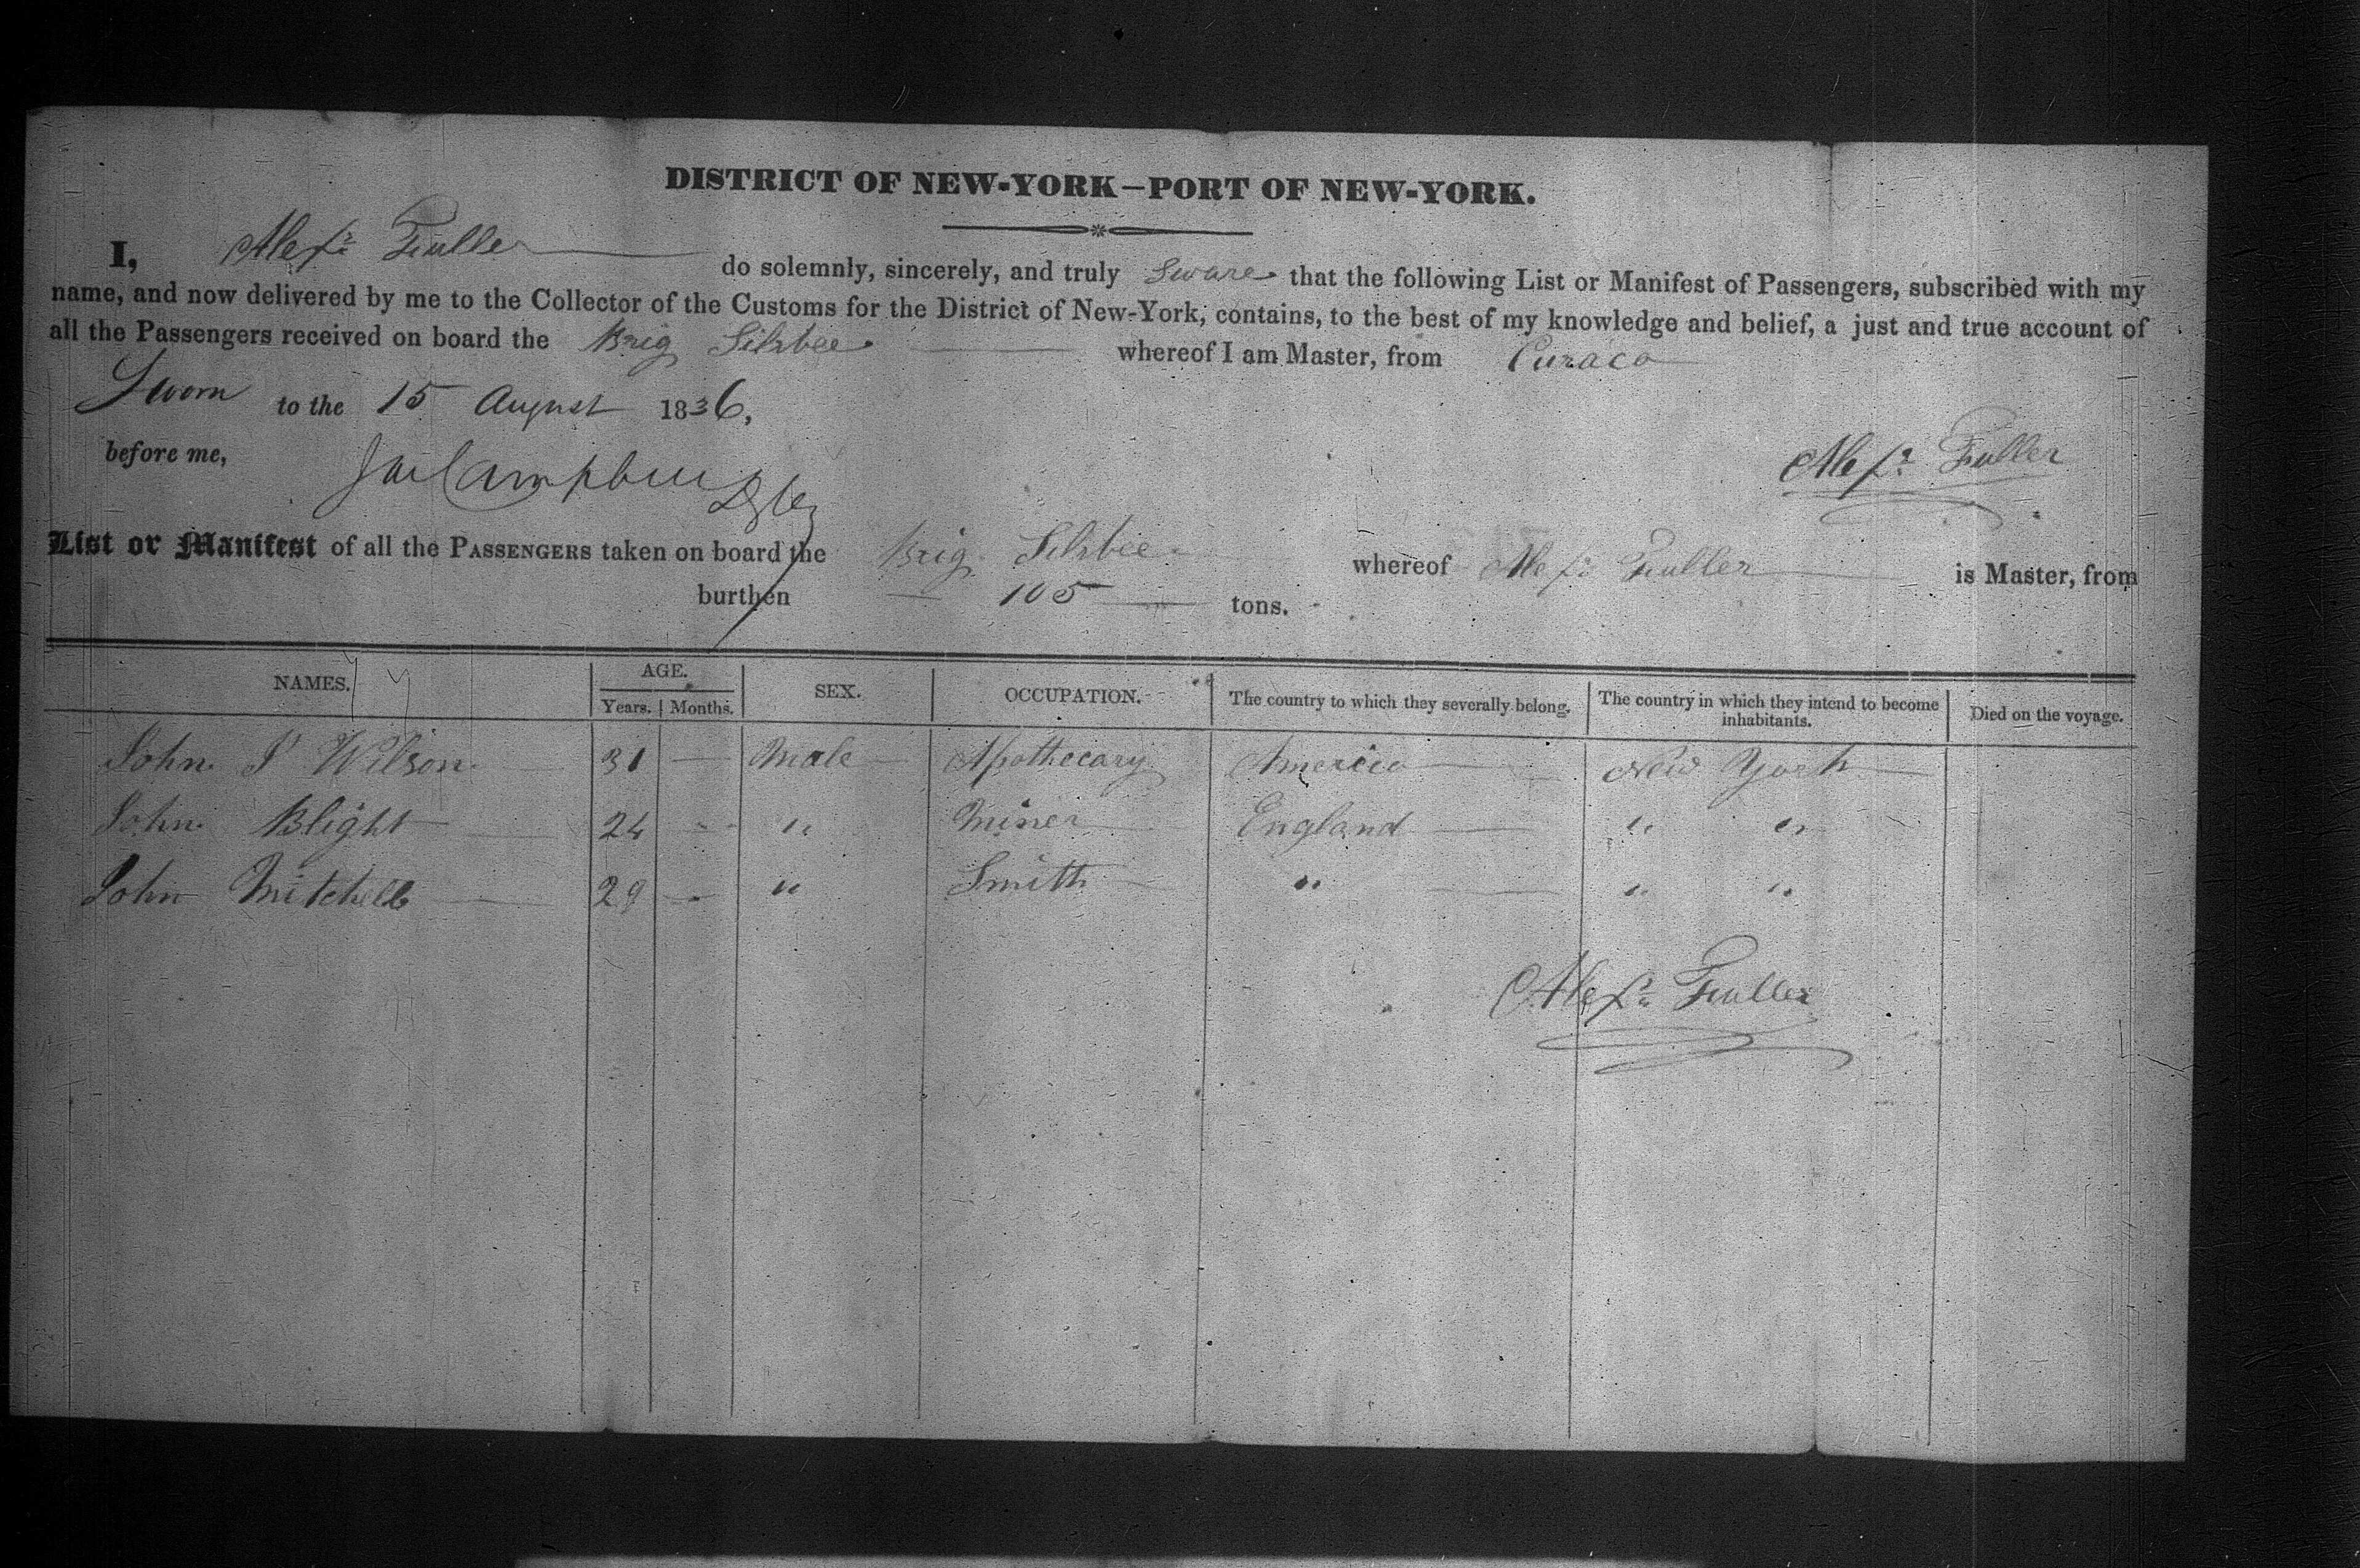 DISTRICT OF NEW-YORK—PORT OF NEW-YORK.
I, Alexr Fuller do solemnly, sincerely, and truly Sware that the following List or Manifest of Passengers, subscribed with my
name, and now delivered by me to the Collector of the Customs for the District of New-York, contains, to the best of my knowledge and belief, a just and true account of
all the Passengers received on board the Brig Silsbee whereof I am Master, from Curaco
Sworn to the 15 August 1836,
before me, Campbell
Alexr Fuller
List or Manifest of all the PASSENGERS taken on board the Brig Silsbee whereof Alexr Fuller is Master, from
burthen 105 tons.
NAMES. AGE. SEX. OCCUPATION. The country to which they severally belong. The country in which they intend to become inhabitants. Died on the voyage.
Years. Months.
John Wilson 31 — Male Apothecary America New York
John Blight 24 - " Miner England " "
John Mitchell 29 - " Smith " " "
Alexr Fuller